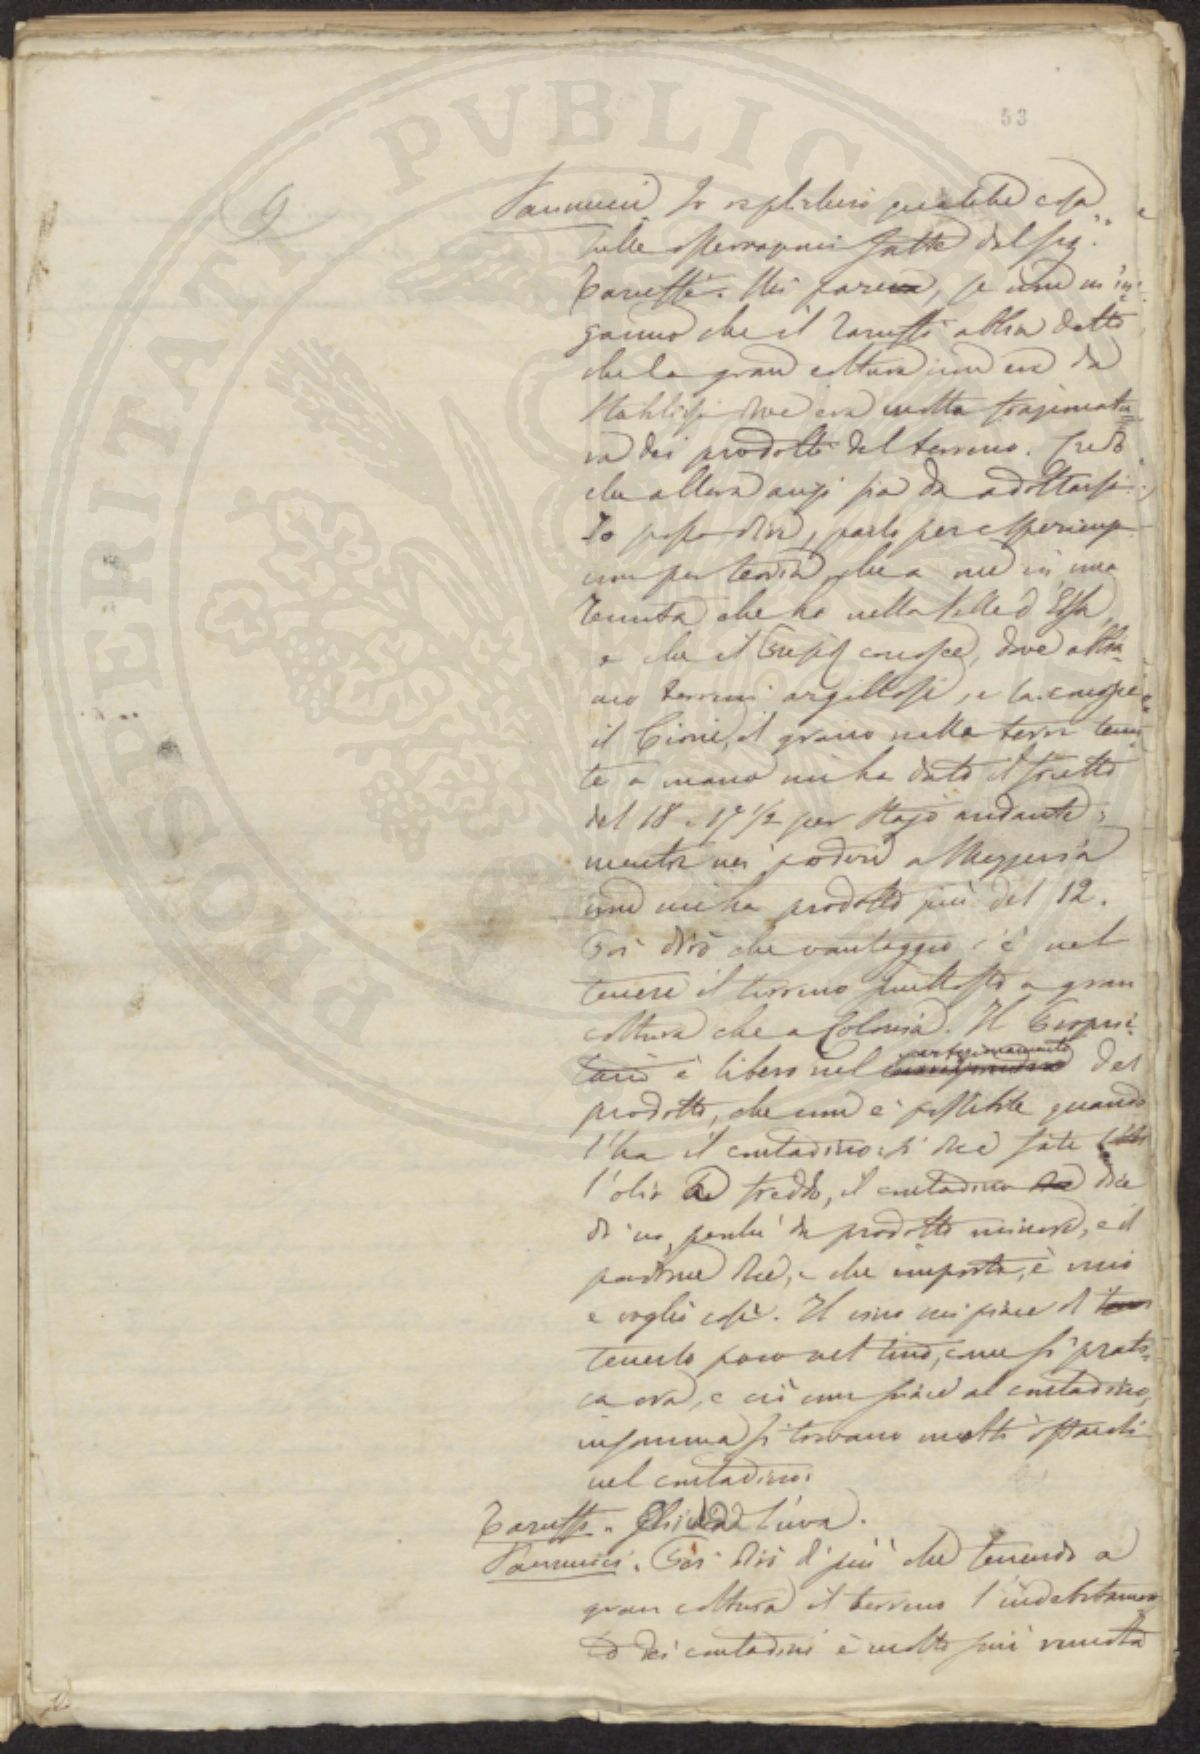 53
9
Vannucci. Io replicherò qualche cosa
sulle osservazioni fatte dal Sig.r
Taruffi. Mi pareva, se non m'in-
ganno che il Taruffi abbia detto
che la gran coltura non era da
stabilirsi dove era molta frazionatu-
ra dei prodotti del terreno. Credo
che allora anzi sia da adottarsi.
Io posso dire, parlo per esperienza
non per teoria, che a me in una
Tenuta che ho nella Valle d'Elsa,
e che il conosce, dove abbia-
mo terreni argillosi, e la conosce
il Cioni, il grano nelle terre tenu-
te a mano mi ha dato il frutto
del 18 e 17 1/2 per stajo andante;
mentre nei poderi a Mezzeria
non mi ha prodotto più del 12.
Poi dirò che vantaggio c'è nel
tenere il terreno piuttosto a gran
coltura che a Colonia. Il Proprie-
tario è libero nel del
prodotto, che non è possibile quando
l'ha il contadino: si dice fate
l'olio a freddo, il contadino dice
di no, perché dà prodotto minore, e il
padrone dice, e che importa, è mio
e voglio così. Il vino mi piace di
tenerlo poco nel tino, come si prati-
ca ora, e ciò non piace al contadino,
insomma si trovano molti ostacoli
nel contadino.
Taruffi. l'uva.
Vannucci. Poi dirò di più che tenendo a
gran coltura il terreno l'indebitamen-
to dei contadini è molto più remoto
PROSPERITATI PVBLICAE